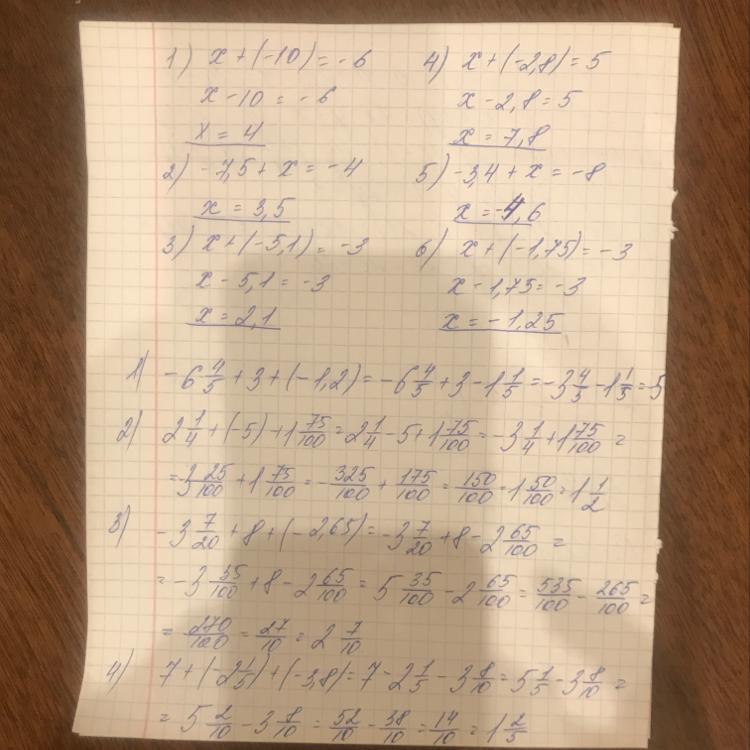 1) x + (-10) = -6
x - 10 = -6
x = 4
2) -7,5 + x = -4
x = 3,5
3) x + (-5,1) = -3
x - 5,1 = -3
x = 2,1
4) x + (-2,8) = 5
x - 2,8 = 5
x = 7,8
5) -3,4 + x = -8
x = -4,6
6) x + (-1,75) = -3
x - 1,75 = -3
x = -1,25
1) -6 4/5 + 3 + (-1,2) = -6 4/5 + 3 - 1 1/5 = -3 4/5 - 1 1/5 = 5
2) 2 1/4 + (-5) + 1 75/100 = 2 1/4 - 5 + 1 75/100 = -3 1/4 + 1 75/100 =
= -3 25/100 + 1 75/100 = -325/100 + 175/100 = 150/100 = 1 50/100 = 1 1/2
3) -3 7/20 + 8 + (-2,65) = -3 7/20 + 8 - 2 65/100 =
= -3 35/100 + 8 - 2 65/100 = 5 35/100 - 2 65/100 = 535/100 - 265/100 =
= 270/100 = 27/10 = 2 7/10
4) 7 + (-2 1/5) + (-3,8) = 7 - 2 1/5 - 3 8/10 = 5 1/5 - 3 8/10 =
= 5 2/10 - 3 8/10 = 52/10 - 38/10 = 14/10 = 1 2/5